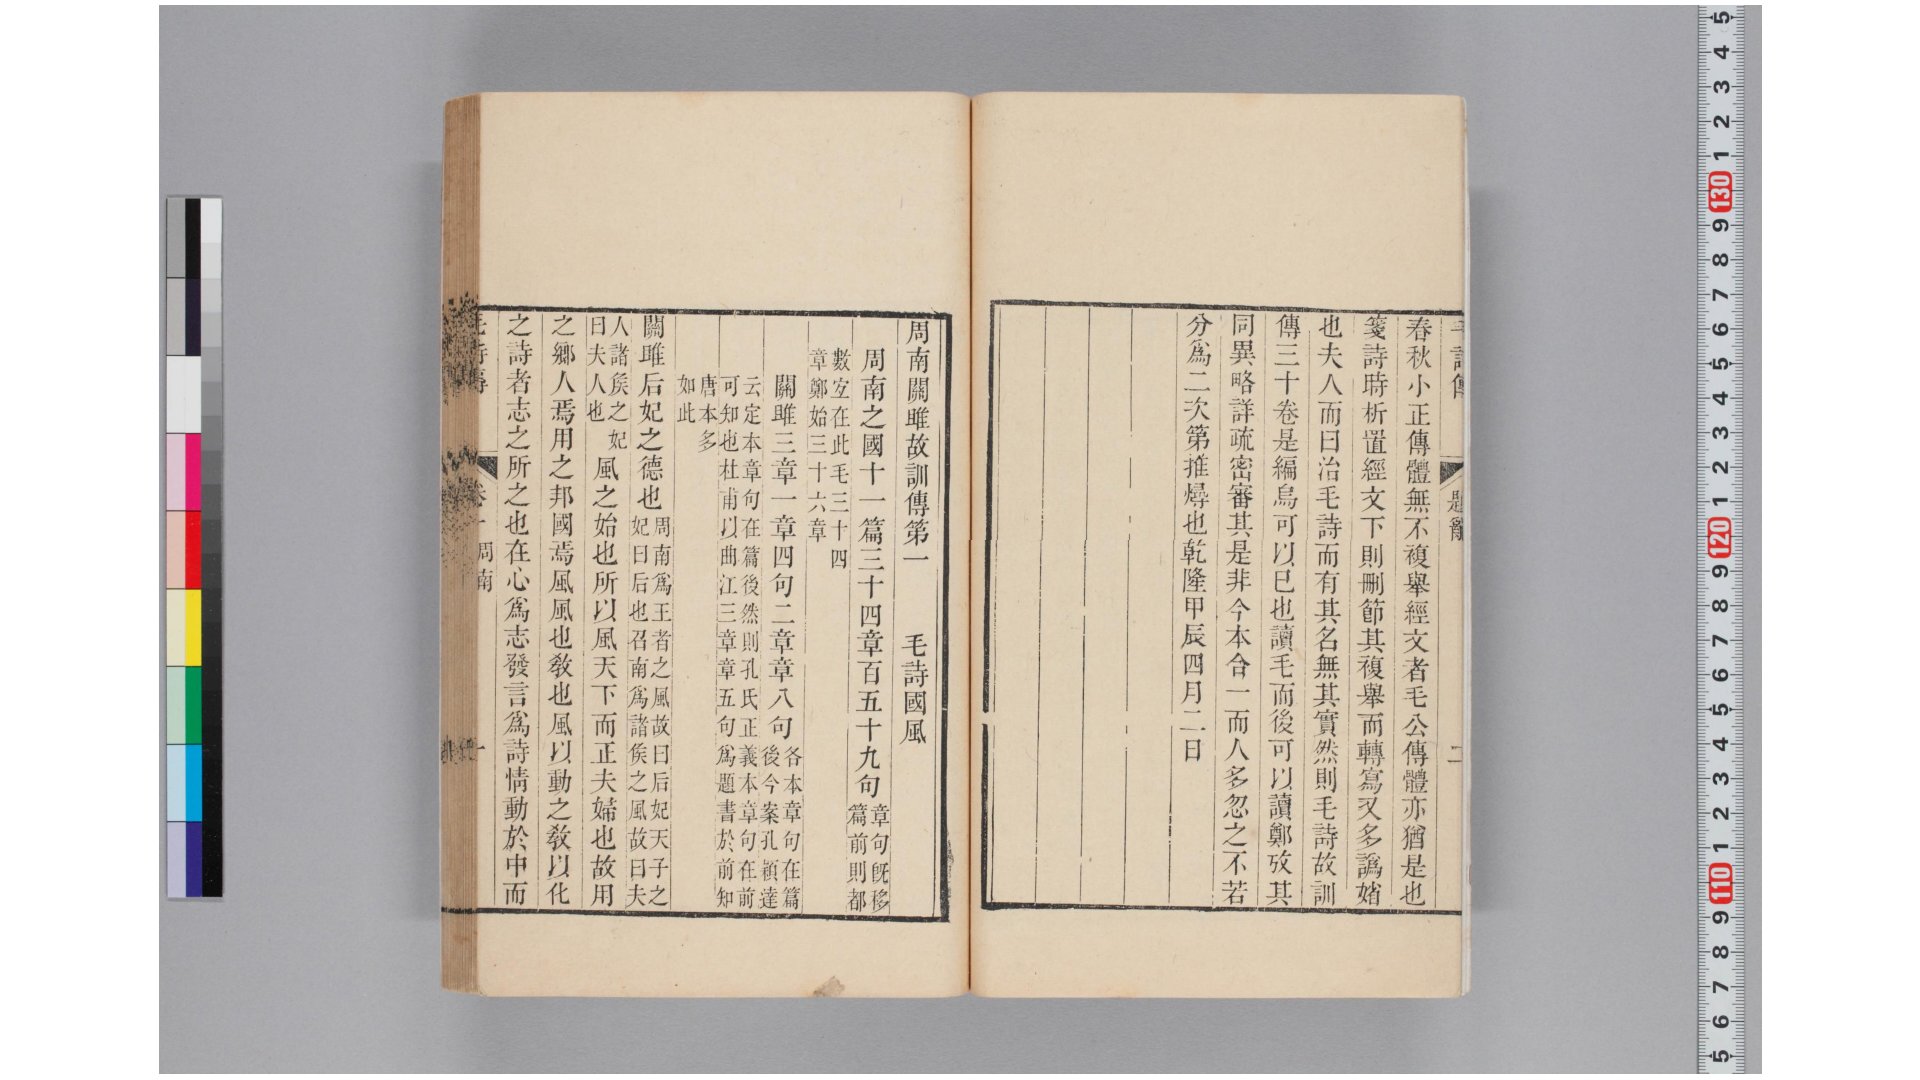 題辭
二
春秋小正傳體無不複舉經文者毛公傳體亦猶是也
箋詩時析置經文下則刪節其複舉而轉寫又多譌媘
也夫人而曰治毛詩而有其名無其實然則毛詩故訓
傳三十卷是編烏可以已也讀毛而後可以讀鄭攷其
同異略詳疏密審其是非今本合一而人多忽之不若
分爲二次第推燖也乾隆甲辰四月二日
周南關雎故訓傳第一　毛詩國風
周南之國十一篇三十四章百五十九句
章句旣移
篇前則都
數宐在此毛三十四
章鄭始三十六章
關雎三章一章四句二章章八句
各本章句在篇
後今案孔穎達
云定本章句在篇後然則孔氏正義本章句在前
可知也杜甫以曲江三章章五句爲題書於前知
唐本多
如此
關雎后妃之德也
周南爲王者之風故曰后妃天子之
妃曰后也召南爲諸矦之風故曰夫
人諸矦之妃
曰夫人也
風之始也所以風天下而正夫婦也故用
之鄉人焉用之邦國焉風風也敎也風以動之敎以化
之詩者志之所之也在心爲志發言爲詩情動於中而
周南
一
5
4
3
2
1
130
9
8
7
6
5
4
3
2
1
120
9
8
7
6
5
4
3
2
1
110
9
8
7
6
5